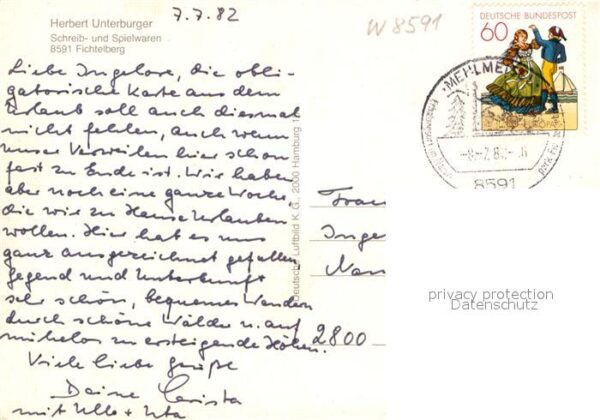 7.7.82
W 8591
Herbert Unterburger
Schreib- und Spielwaren
8591 Fichtelberg
DEUTSCHE BUNDESPOST
60
MEHLME
8591
Liebe Ingelore, die obli-
gatorische Karte aus dem
Urlaub soll auch diesmal
nicht fehlen, auch wenn
unser Verweilen hier schon
fast zu Ende ist. Wir haben
aber noch eine ganze Woche,
die wir zu Hause Urlauben
wollen. Hier hat es uns
ganz ausgezeichnet gefallen,
Gegend und Unterkunft
sehr schön, bequemes Wandern
durch schöne Wälder u. auf
mühelos zu ersteigende Höhen.
Viele liebe Grüße
Deine Christa
mit Ullo + Uta
Deutsche Luftbild K.G., 2000 Hamburg
Frau
Inge
Nan
2800
privacy protection
Datenschutz